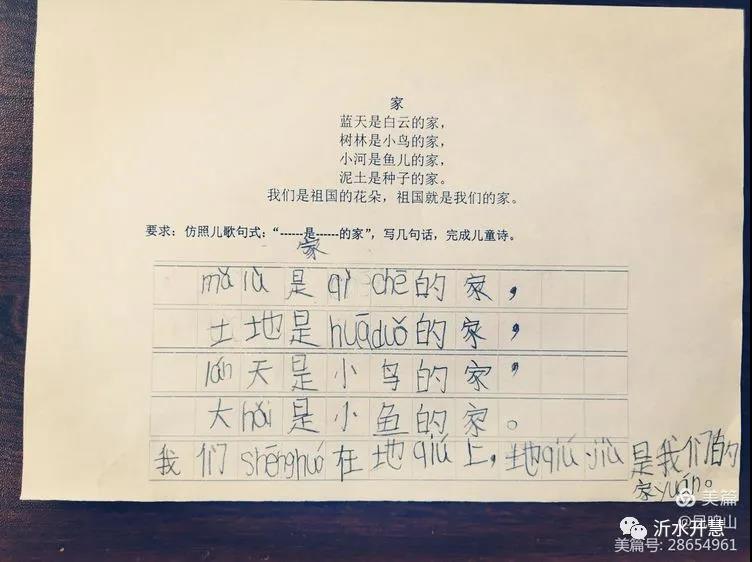 家
蓝天是白云的家，
树林是小鸟的家，
小河是鱼儿的家，
泥土是种子的家。
我们是祖国的花朵，祖国就是我们的家。
要求：仿照儿歌句式：“------是------的家”，写几句话，完成儿童诗。
家
mǎ lù 是 qì chē 的家，
土地是 huāduǒ 的家，
lán 天是小鸟的家，
大 hǎi 是小鱼的家。
我们 shēnghuó 在地 qiú 上，地qiú jiù 是我们的
家yuán。
美篇
@昆鸣山
沂水开慧
美篇号: 28654961